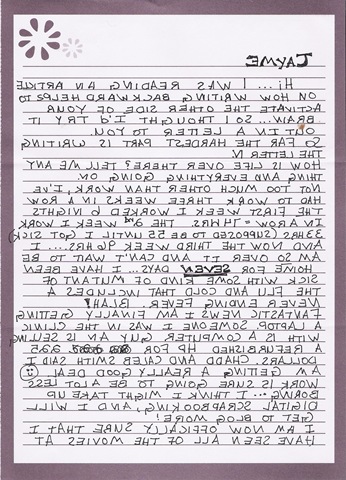 JAYME
HI... I WAS READING AN ARTICLE
ON HOW WRITING BACKWARD HELPS TO
ACTIVATE THE OTHER SIDE OF YOUR
BRAIN... SO I THOUGHT I'D TRY IT
OUT IN A LETTER TO YOU.
SO FAR THE HARDEST PART IS WRITING
THE N LETTER N
HOW IS LIFE OVER THERE? TELL ME ANY
THING AND EVERYTHING GOING ON.
NOT TOO MUCH OTHER THAN WORK, I'VE
HAD TO WORK THREE WEEKS IN A ROW
THE FIRST WEEK I WORKED 6 NIGHTS
IN A ROW = 74HRS. THE 2ND WEEK I WORK
33HRS (SUPPOSED TO BE 55 UNTIL I GOT SICK)
AND NOW THE THIRD WEEK 96HRS.... I
AM SO OVER IT AND CAN'T WAIT TO BE
HOME FOR SEVEN DAYS... I HAVE BEEN
SICK WITH SOME KIND OF MUTANT OF
THE FLU AND COLD THAT INCLUDES A
NEVER ENDING FEVER. BLAH!
FANTASTIC NEWS I AM FINALLY GETTING
A LAPTOP. SOMEONE I WAS IN THE CLINIC
WITH IS A COMPUTER GUY AN IS SELLING
A REFURBISHED HP FOR 395
DOLLARS. CHADD AND CALEB SMITH SAID I
AM GETTING A REALLY GOOD DEAL
WORK IS SURE GOING TO BE A LOT LESS
BORING... I THINK I MIGHT TAKE UP
DIGITAL SCRAPBOOKING, AND I WILL
GET TO BLOG MORE!
I AM NOW OFFICALLY SURE THAT I
HAVE SEEN ALL OF THE MOVIES AT